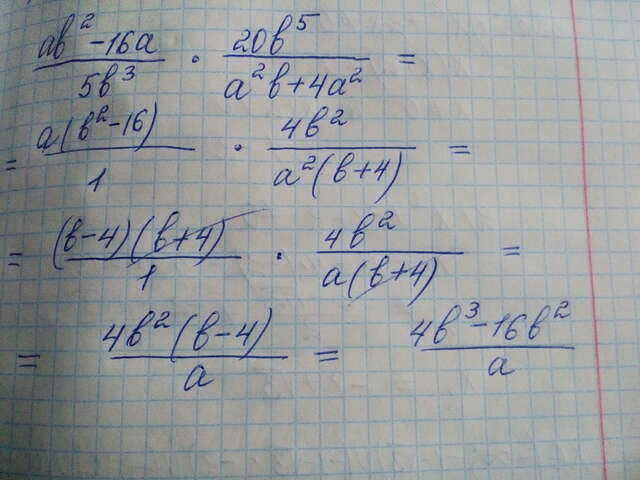 (ab² - 16a)/(5b³) · (20b⁵)/(a²b + 4a²) =
= (a(b² - 16))/1 · (4b²)/(a²(b + 4)) =
= ((b - 4)(b + 4))/1 · (4b²)/(a(b + 4)) =
= (4b²(b - 4))/a = (4b³ - 16b²)/a